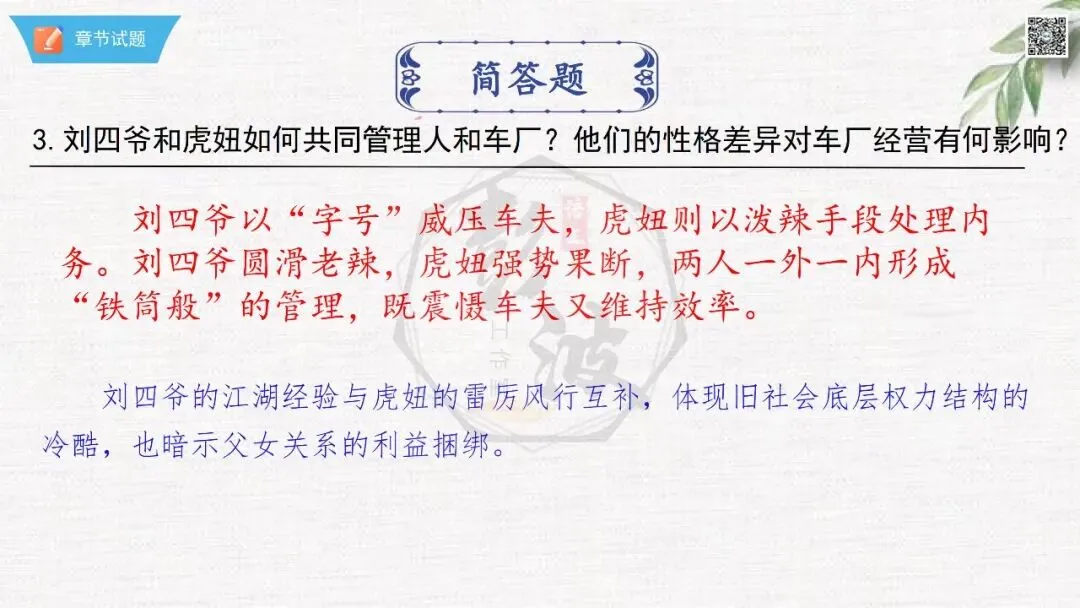 章节试题
简答题
3. 刘四爷和虎妞如何共同管理人和车厂？他们的性格差异对车厂经营有何影响？
刘四爷以“字号”威压车夫，虎妞则以泼辣手段处理内
务。刘四爷圆滑老辣，虎妞强势果断，两人一外一内形成
“铁筒般”的管理，既震慑车夫又维持效率。
刘四爷的江湖经验与虎妞的雷厉风行互补，体现旧社会底层权力结构的
冷酷，也暗示父女关系的利益捆绑。